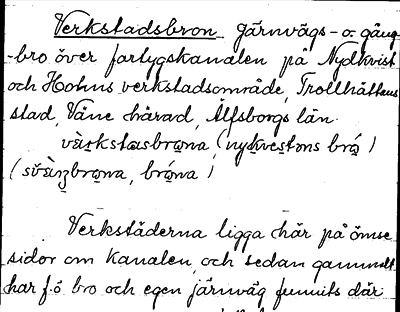 Verkstadsbron järnvägs- o. gång-
-bro över fartygskanalen på Nydkvist
och Hoohns verkstadsområde, Trollhättans
stad, Väne härad, Älfsborgs län.
(nykvestons
bróna
Verkstäderna ligga här på ömse
sidor om kanalen, och sedan gammalt
har f.ö bro och egen järnväg funnits där